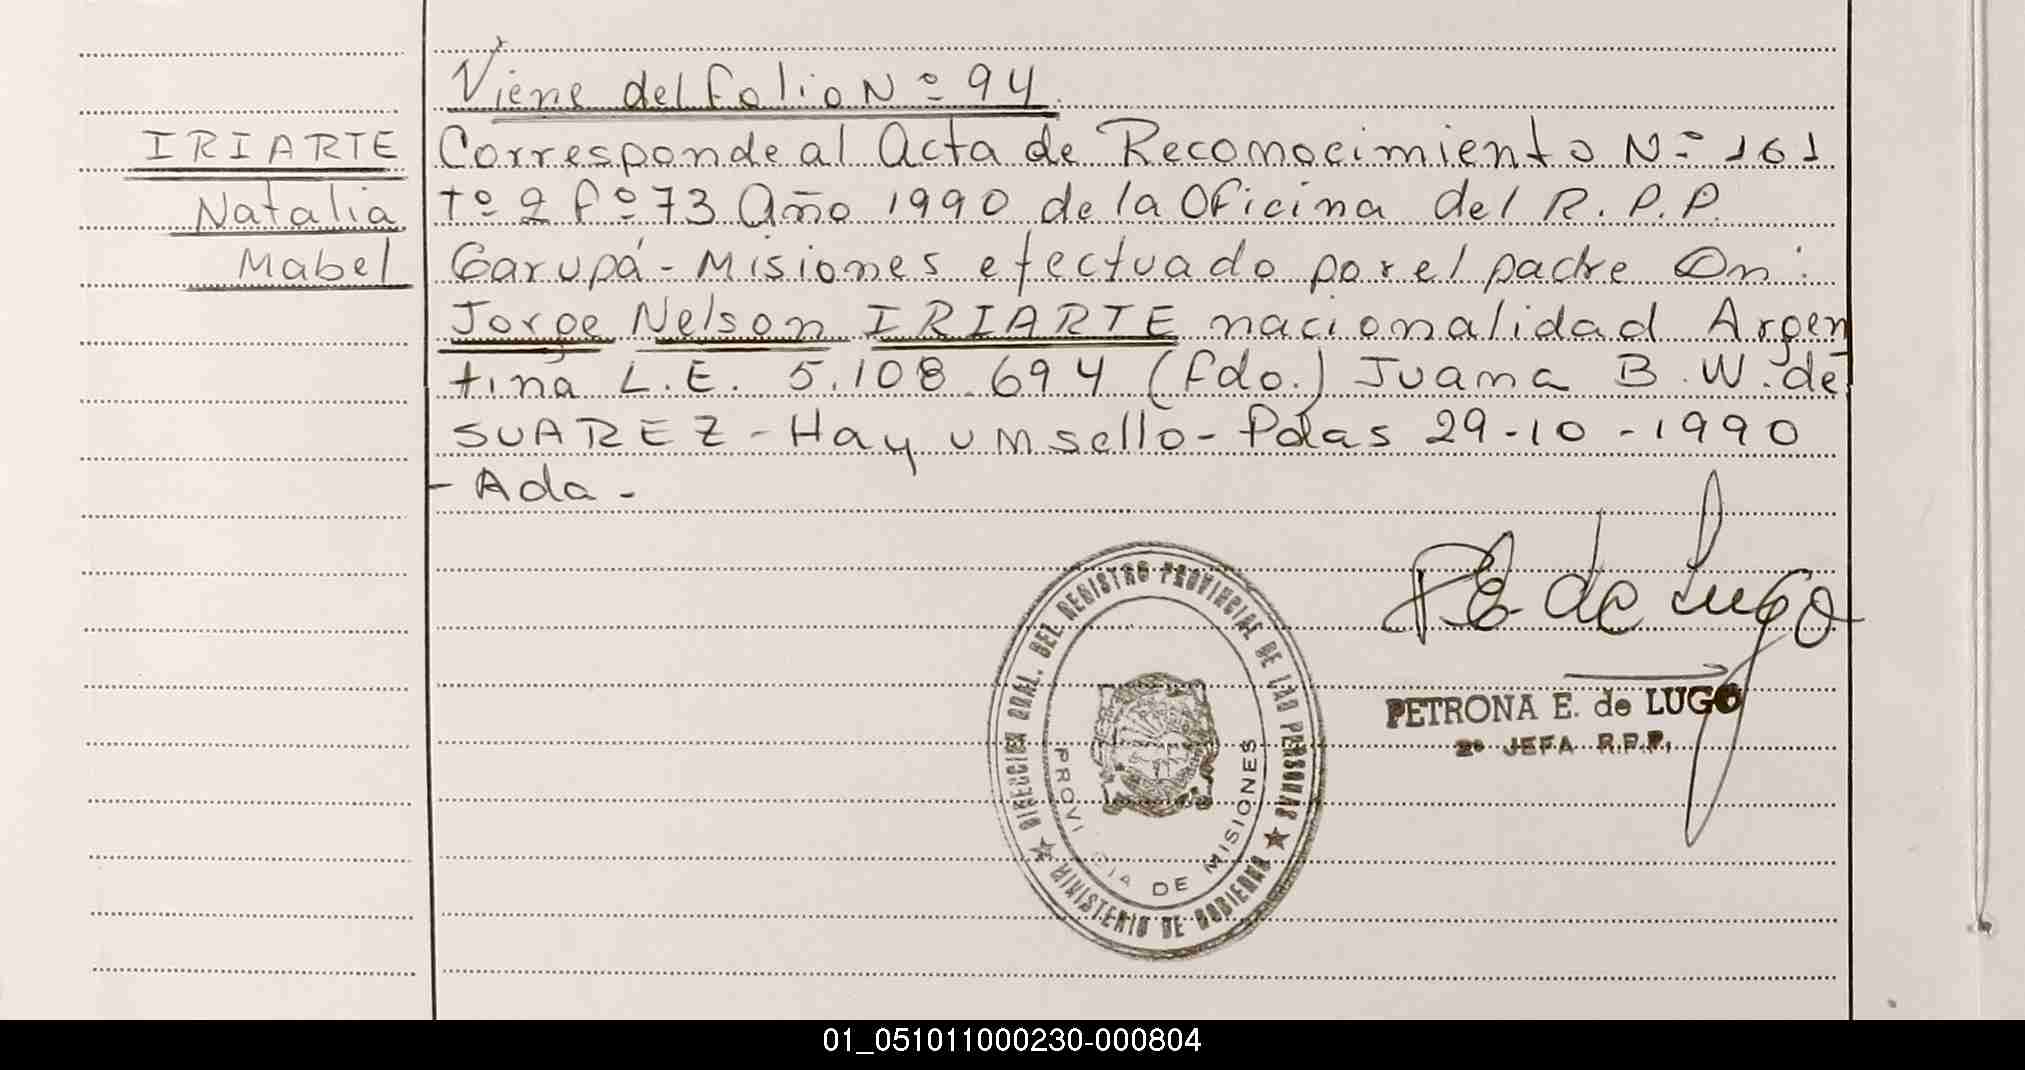 Viene del folio Nº 94
IRIARTE Corresponde al Acta de Reconocimiento Nº 161
Natalia tº 2 fº 73 Año 1990 de la Oficina del R.P.P.
Mabel Garupá - Misiones efectuado por el padre Dn:
Jorge Nelson IRIARTE nacionalidad Argen
tina L.E. 5.108.694 (fdo.) Juana B.W. de
SUAREZ - Hay un sello - Pdas 29-10-1990
- Ada -
P E de Lugo
PETRONA E. de LUGO
2º JEFA R.P.P.
DIRECCION GRAL. DEL REGISTRO PROVINCIAL DE LAS PERSONAS
★ MINISTERIO DE GOBIERNO ★
PROVI CIA DE MISIONES
01_051011000230-000804